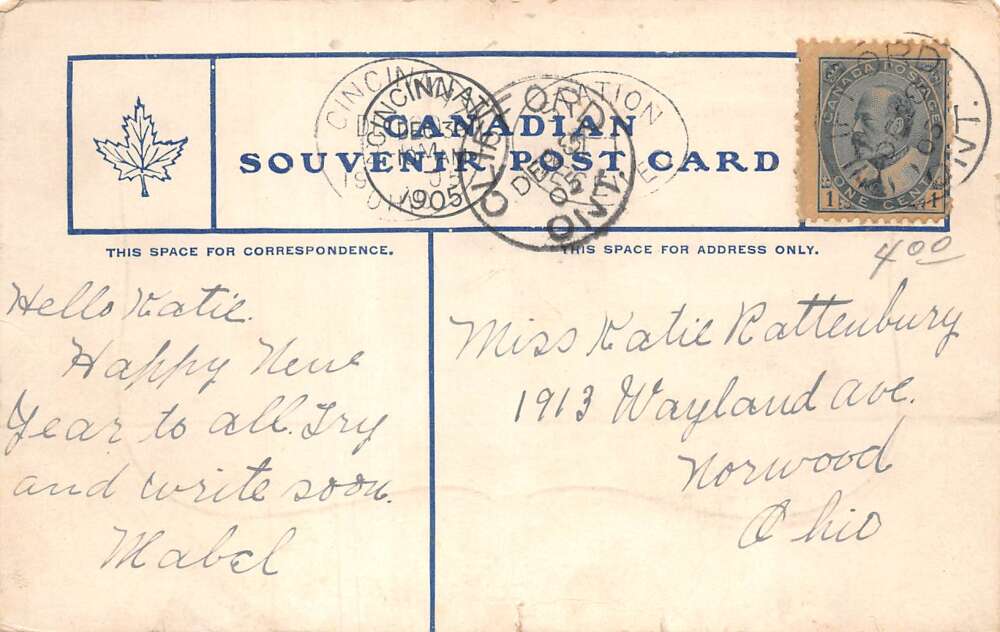 CANADIAN
SOUVENIR POST CARD
CINCINNATI
DEC
1905
CLIFFORD
DE
05
ONT.
STATION
CANADA POSTAGE
1 ONE CENT 1
ORD
ONT.
THIS SPACE FOR CORRESPONDENCE.
THIS SPACE FOR ADDRESS ONLY.
4.00
Hello Katie.
Happy New
Year to all. Try
and write soon.
Mabel
Miss Katie Rattenbury
1913 Wayland ave.
Norwood
Ohio